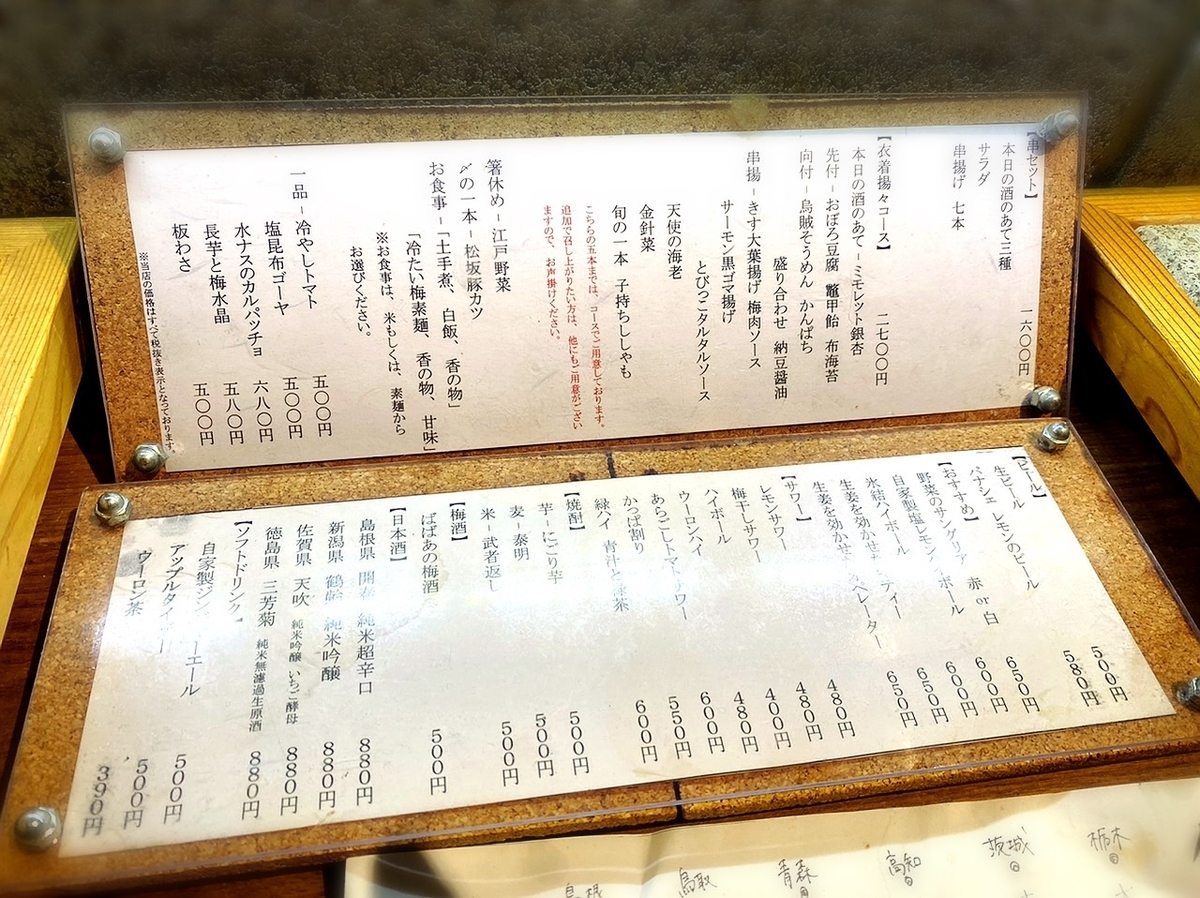 【串セット】
一六〇〇円
本日の酒のあて三種
サラダ
串揚げ 七本
【衣着揚々コース】
二七〇〇円
本日の酒のあて－ミモレット銀杏
先付－おぼろ豆腐 鼈甲飴 布海苔
向付－烏賊そうめん かんぱち
盛り合わせ 納豆醤油
串揚－きす大葉揚げ 梅肉ソース
サーモン黒ゴマ揚げ
とびっこタルタルソース
天使の海老
金針菜
旬の一本 子持ちししゃも
こちらの五本までは、コースでご用意しております。
追加で召し上がりたい方は、他にもご用意がござい
ますので、お声掛けください。
箸休め－江戸野菜
〆の一本－松坂豚カツ
お食事－「土手煮、白飯、香の物」
「冷たい梅素麺、香の物、甘味」
※お食事は、米もしくは、素麺から
お選びください。
一品－冷やしトマト 五〇〇円
塩昆布ゴーヤ 五〇〇円
水ナスのカルパッチョ 六八〇円
長芋と梅水晶 五八〇円
板わさ 五〇〇円
※当店の価格はすべて税抜き表示となっております。
【ビール】
生ビール 500円
パナシェ レモンのビール 580円
【おすすめ】
野菜のサングリア 赤 or 白 650円
自家製塩レモンハイボール 600円
氷結ハイボール 600円
生姜を効かせ ティー 650円
生姜を効かせ ヘレーター 650円
【サワー】
レモンサワー 480円
梅干しサワー 480円
ハイボール 400円
ウーロンハイ 480円
あらごしトマトサワー 600円
かっぱ割り 550円
緑ハイ 青汁と緑茶 600円
【焼酎】
芋－にごり芋 500円
麦－泰明 500円
米－武者返し 500円
【梅酒】
ばばあの梅酒 500円
【日本酒】
島根県 開春 純米超辛口 880円
新潟県 鶴齢 純米吟醸 880円
佐賀県 天吹 純米吟醸 いちご酵母 880円
徳島県 三芳菊 純米無濾過生原酒 880円
【ソフトドリンク】
自家製ジンジャーエール 500円
アップルタイザー 500円
ウーロン茶 390円
栃木
茨城
高知
青森
鳥取
島根